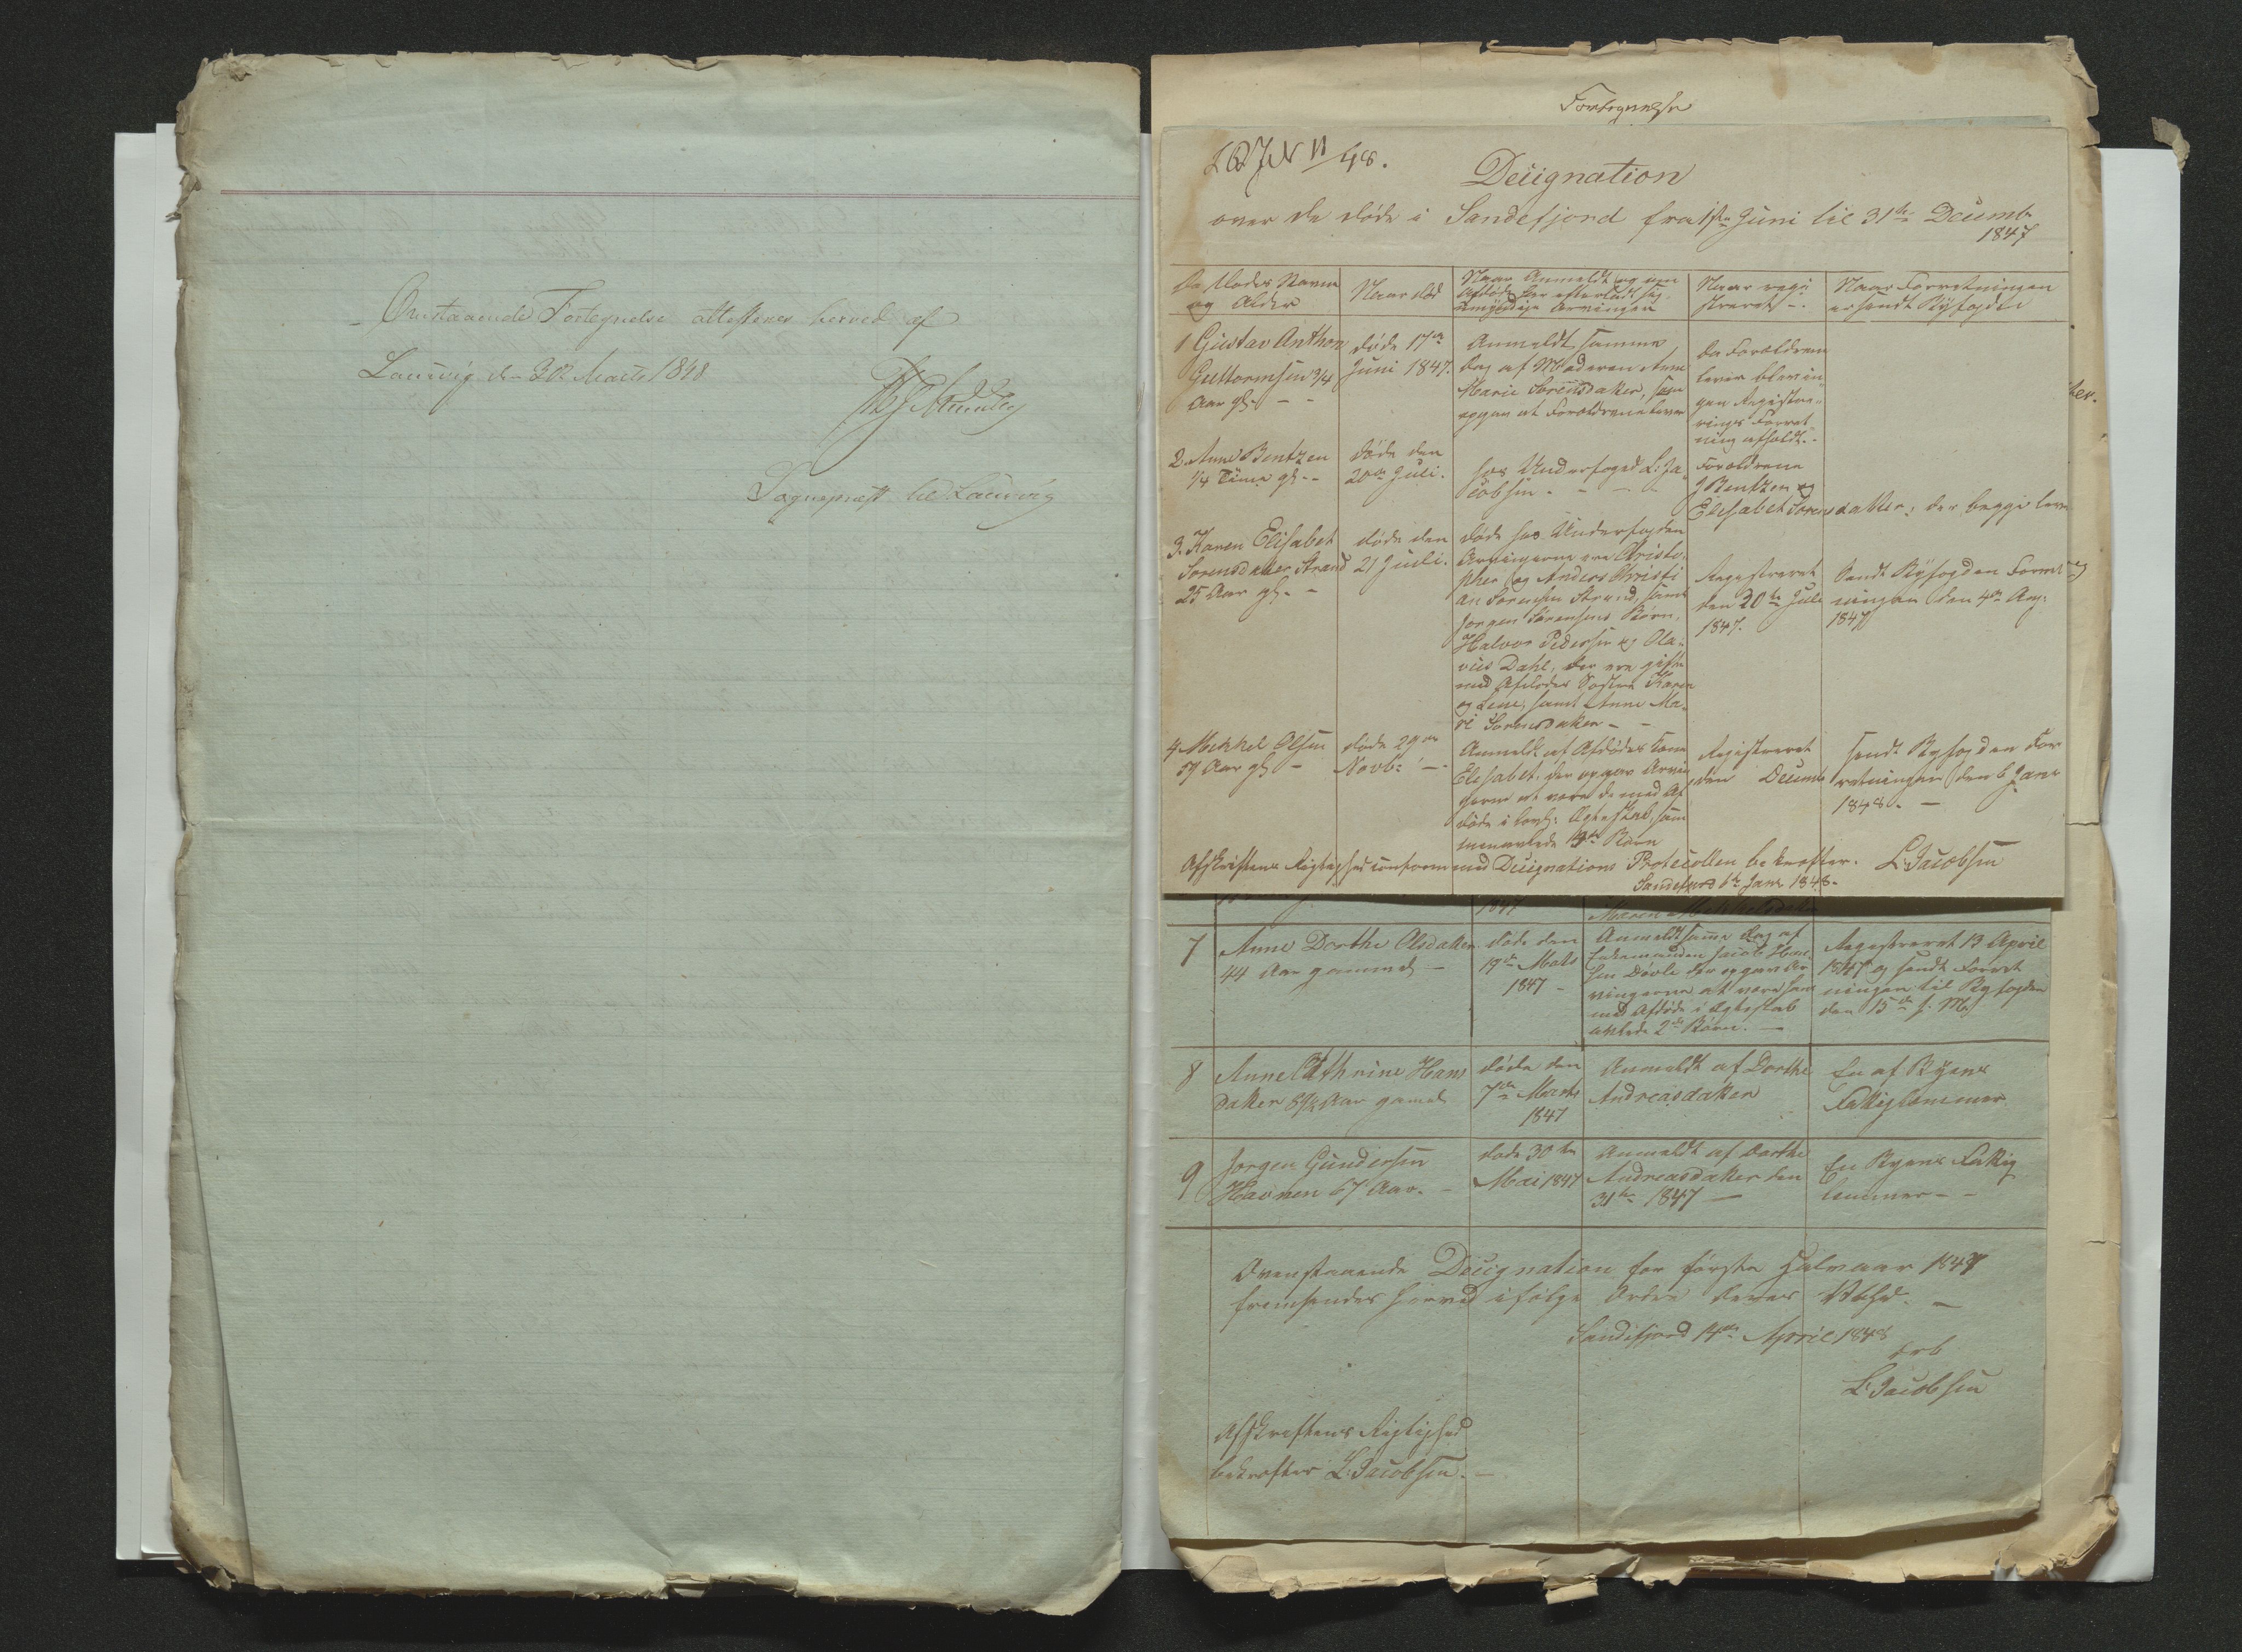 Omstaaende Fortegnelse attesteres herved af
Laurvig den 30 Marts 1848
Sognepræst til Laurvig
Fortegnelse
No 11/48.
Designation
over de døde i Sandefjord fra 1ste Juni til 31te Decembr
1847
De Dødes Navne
og Alder
Naar død
Naar Anmeldt og om
Afdøde har efterladt sig
umyndige Arvinger
Naar regi
streret -
Naar Forretningen
er sendt Byfogden
1 Gustav Anthon
Guttormsen 3/4
Aar gl. - -
døde 17de
Juni 1847.
Anmeldt samme
Dag af Moderen Anne
Marie Sørensdatter, som
opgav at Forældrene lever
Da Forældrene
lever blev in-
gen Registre-
rings Forret
ning afholdt. -
2. Anne Bentzen
1/4 Time gl. - -
døde den
20de Juli.
hos Underfoged L: Ja-
cobsen. - - -
Forældrene
J Bentzen og
Elisabet Sørensdatter; der begge lever
3. Karen Elisabet
Sørensdatter Strand
25 Aar gl. -
døde den
21 Juli.
døde hos Underfogden
Arvingerne ere Christo-
pher og Anders Christi
an Sørensen Strand, samt
Jørgen Sørensens Børn,
Halvor Pedersen og Ola-
vus Dahl, der ere gifte
med Afdødes Søstre Karen
og Lene, samt Anne Ma-
rie Sørensdatter - -
Registreret
den 20de Juli
1847.
Sendt Byfogden Forret
ningen den 4de Aug:
1847
4. Mekkel Olsen
57 Aar gl. -
døde 29de
Novb: -
Anmeldt af Afdødes Kone
Elisabet, der opgav Arvin
gerne at være de med Af
døde i lovl: Ægteskab, sam
menavlede Børn
Registreret
den Decemb
sendt Byfogden For
retningen den 6 Janr
1848. -
Afskriftens Rigtighed conform med Designations Protocollen bekræfter. L: Jacobsen
Sandefjord 6te Janr 1848.
1847
Maren Mekkelsdatter
7
Anne Dorthe Olsdatter
44 Aar gammel -
døde den
19de Mats
1847 -
Anmeldt samme Dag af
Enkemanden Jacob Han-
sen Døvle der opgav Ar
vingerne at være som
med Afdøde i Ægteskab
avlede 2de Børn. -
Registreret 13 April
1847 og sendt Forret
ningen til Byfogden
den 15de s. M:
8
Anne Cathrine Hans
datter Aar gamel
døde den
7de Marts
1847
Anmeldt af Dorthe
Andreasdatter
En af Byens
Fattiglemmer.
9
Jørgen Gundersen
Havnen 67 Aar. -
døde 30te
Mai 1847
Anmeldt af Dorthe
Andreasdatter den
31te 1847 -
En Byens Fattig
lemmer - -
Ovenstaaende Designation for første Halvaar 1847
fremsendes herved ifølge Ordre
Sandefjord 14de April 1848
ærb
L: Jacobsen
Afskriftens Rigtighed
bekræfter L: Jacobsen. -